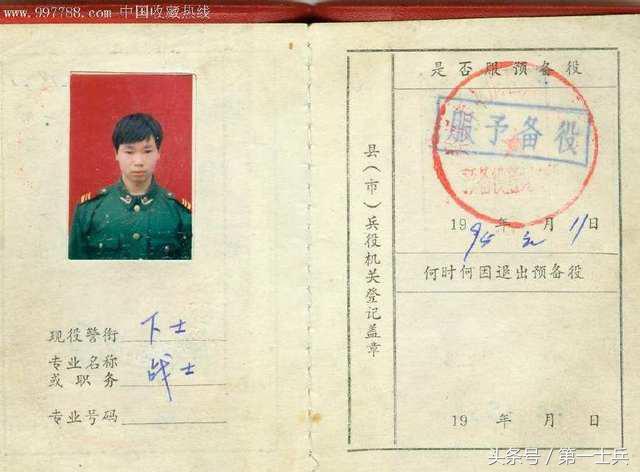 www.997788.com 中国收藏热线
现役警衔 下士
专业名称
或职务 战士
专业号码
县(市)兵役机关登记盖章
是否服预备役
服予备役
1994年元月11日
何时何因退出预备役
19 年 月 日
头条号/第一士兵